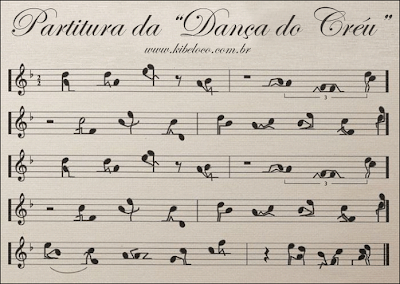 Partitura da “Dança do Créu”
www.kibeloco.com.br
3
3